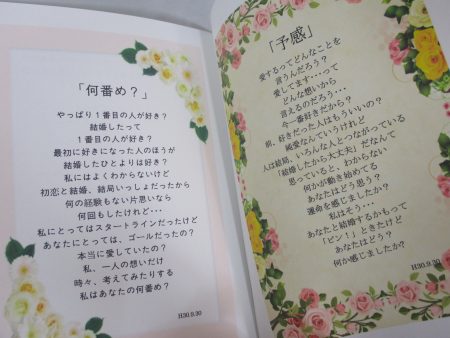 「何番め？」
やっぱり１番目の人が好き？
結婚したって
１番目の人が好き？
最初に好きになった人のほうが
結婚したひとよりは好き？
私にはよくわからないけど
初恋と結婚、結局いっしょだったから
何の経験もない片思いなら
何回もしたけれど・・・
私にとってはスタートラインだったけど
あなたにとっては、ゴールだったの？
本当に愛していたの？
私、一人の想いだけ
時々、考えてみたりする
私はあなたの何番め？
H30.9.20
「予感」
愛するってどんなことを
言うんだろう？
愛してます・・・って
どんな想いから
言えるのだろう・・・
一番好きだから？
前、好きだった人はもういいの？
純愛なんていうけれど
人は結局、いろんな人とつながっている
「結婚したから大丈夫」だなんて
思っていると、わからない
何かが動き始めてる
あなたはどう思う？
運命を感じましたか？
私はそう・・・
あなたと結婚するかもって
「ピン！」ときたけど
あなたはどう？
何か感じましたか？
H30.9.30